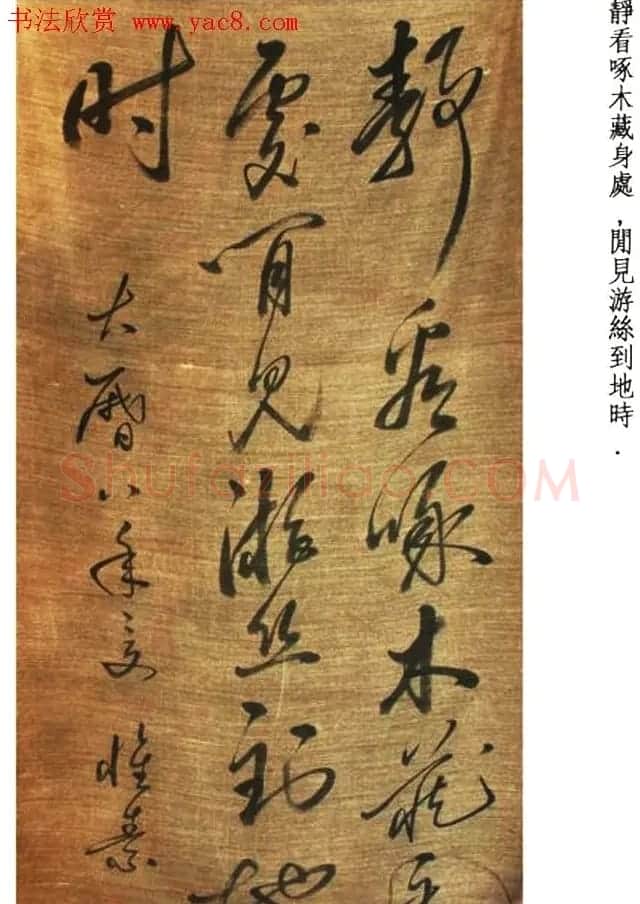 书法欣赏 www.yac8.com
靜看啄木藏身處，閒見游絲到地時．
靜看啄木藏身
處閒見游絲到地
时
大曆八年夏 懷素
Shufaziliao.COM